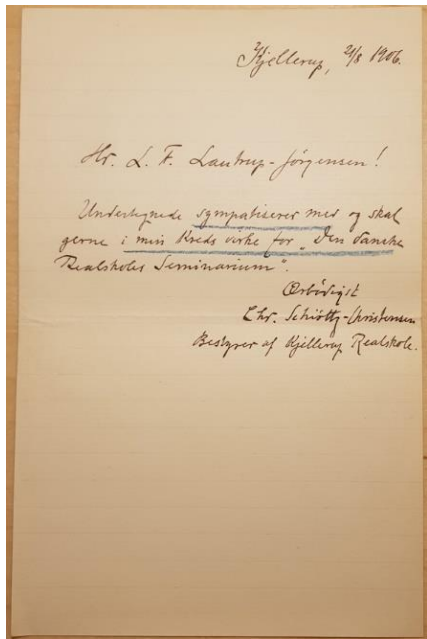 Kjellerup, 21/8 1906.
Hr. L. F. Lautrup-Jörgensen!
Undertegnede sympatiserer med og skal
gerne i min Kreds virke for „Den danske
Realskoles Seminarium".
Ærbödigst
Chr. Schiøttz-Christensen
Bestyrer af Kjellerup Realskole.